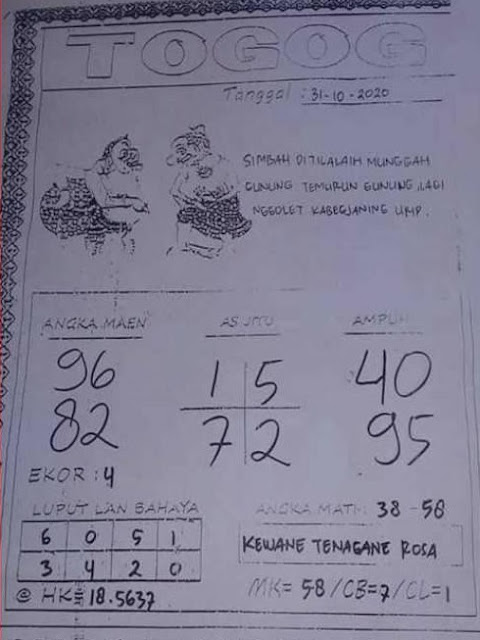 TOGOG
Tanggal : 31-10-2020
SIMBAH DITILALAIH MUNGGAH
GUNUNG TEMURUN GUNUNG, LAGI
NGGOLET KABEGJANING UMP.
ANGKA MAEN
AS JITU
AMPUH
96
1 5
40
82
7 2
95
EKOR : 4
LUPUT LAN BAHAYA
ANGKA MATI: 38 - 58
6 0 5 1
3 4 2 0
KEWANE TENAGANE ROSA
@ HK= 18.5637
MK= 58 / CB=7 / CL=1